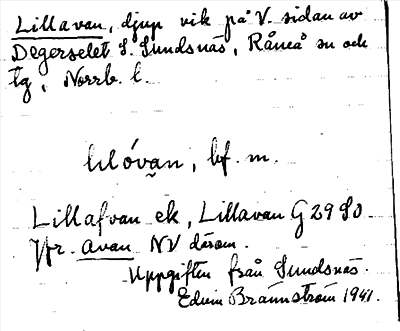 Lillavan, djup vik på V. sidan av
Degerselet S. Sundsnäs, Råneå sn och
tg, Norrb. l.
lilóvan, bf. m.
Lillafvan ek, Lillavan G 29 SO
Jfr. Avan NV därom.
Uppgiften från Sundsnäs.
Edvin Brännström 1941.